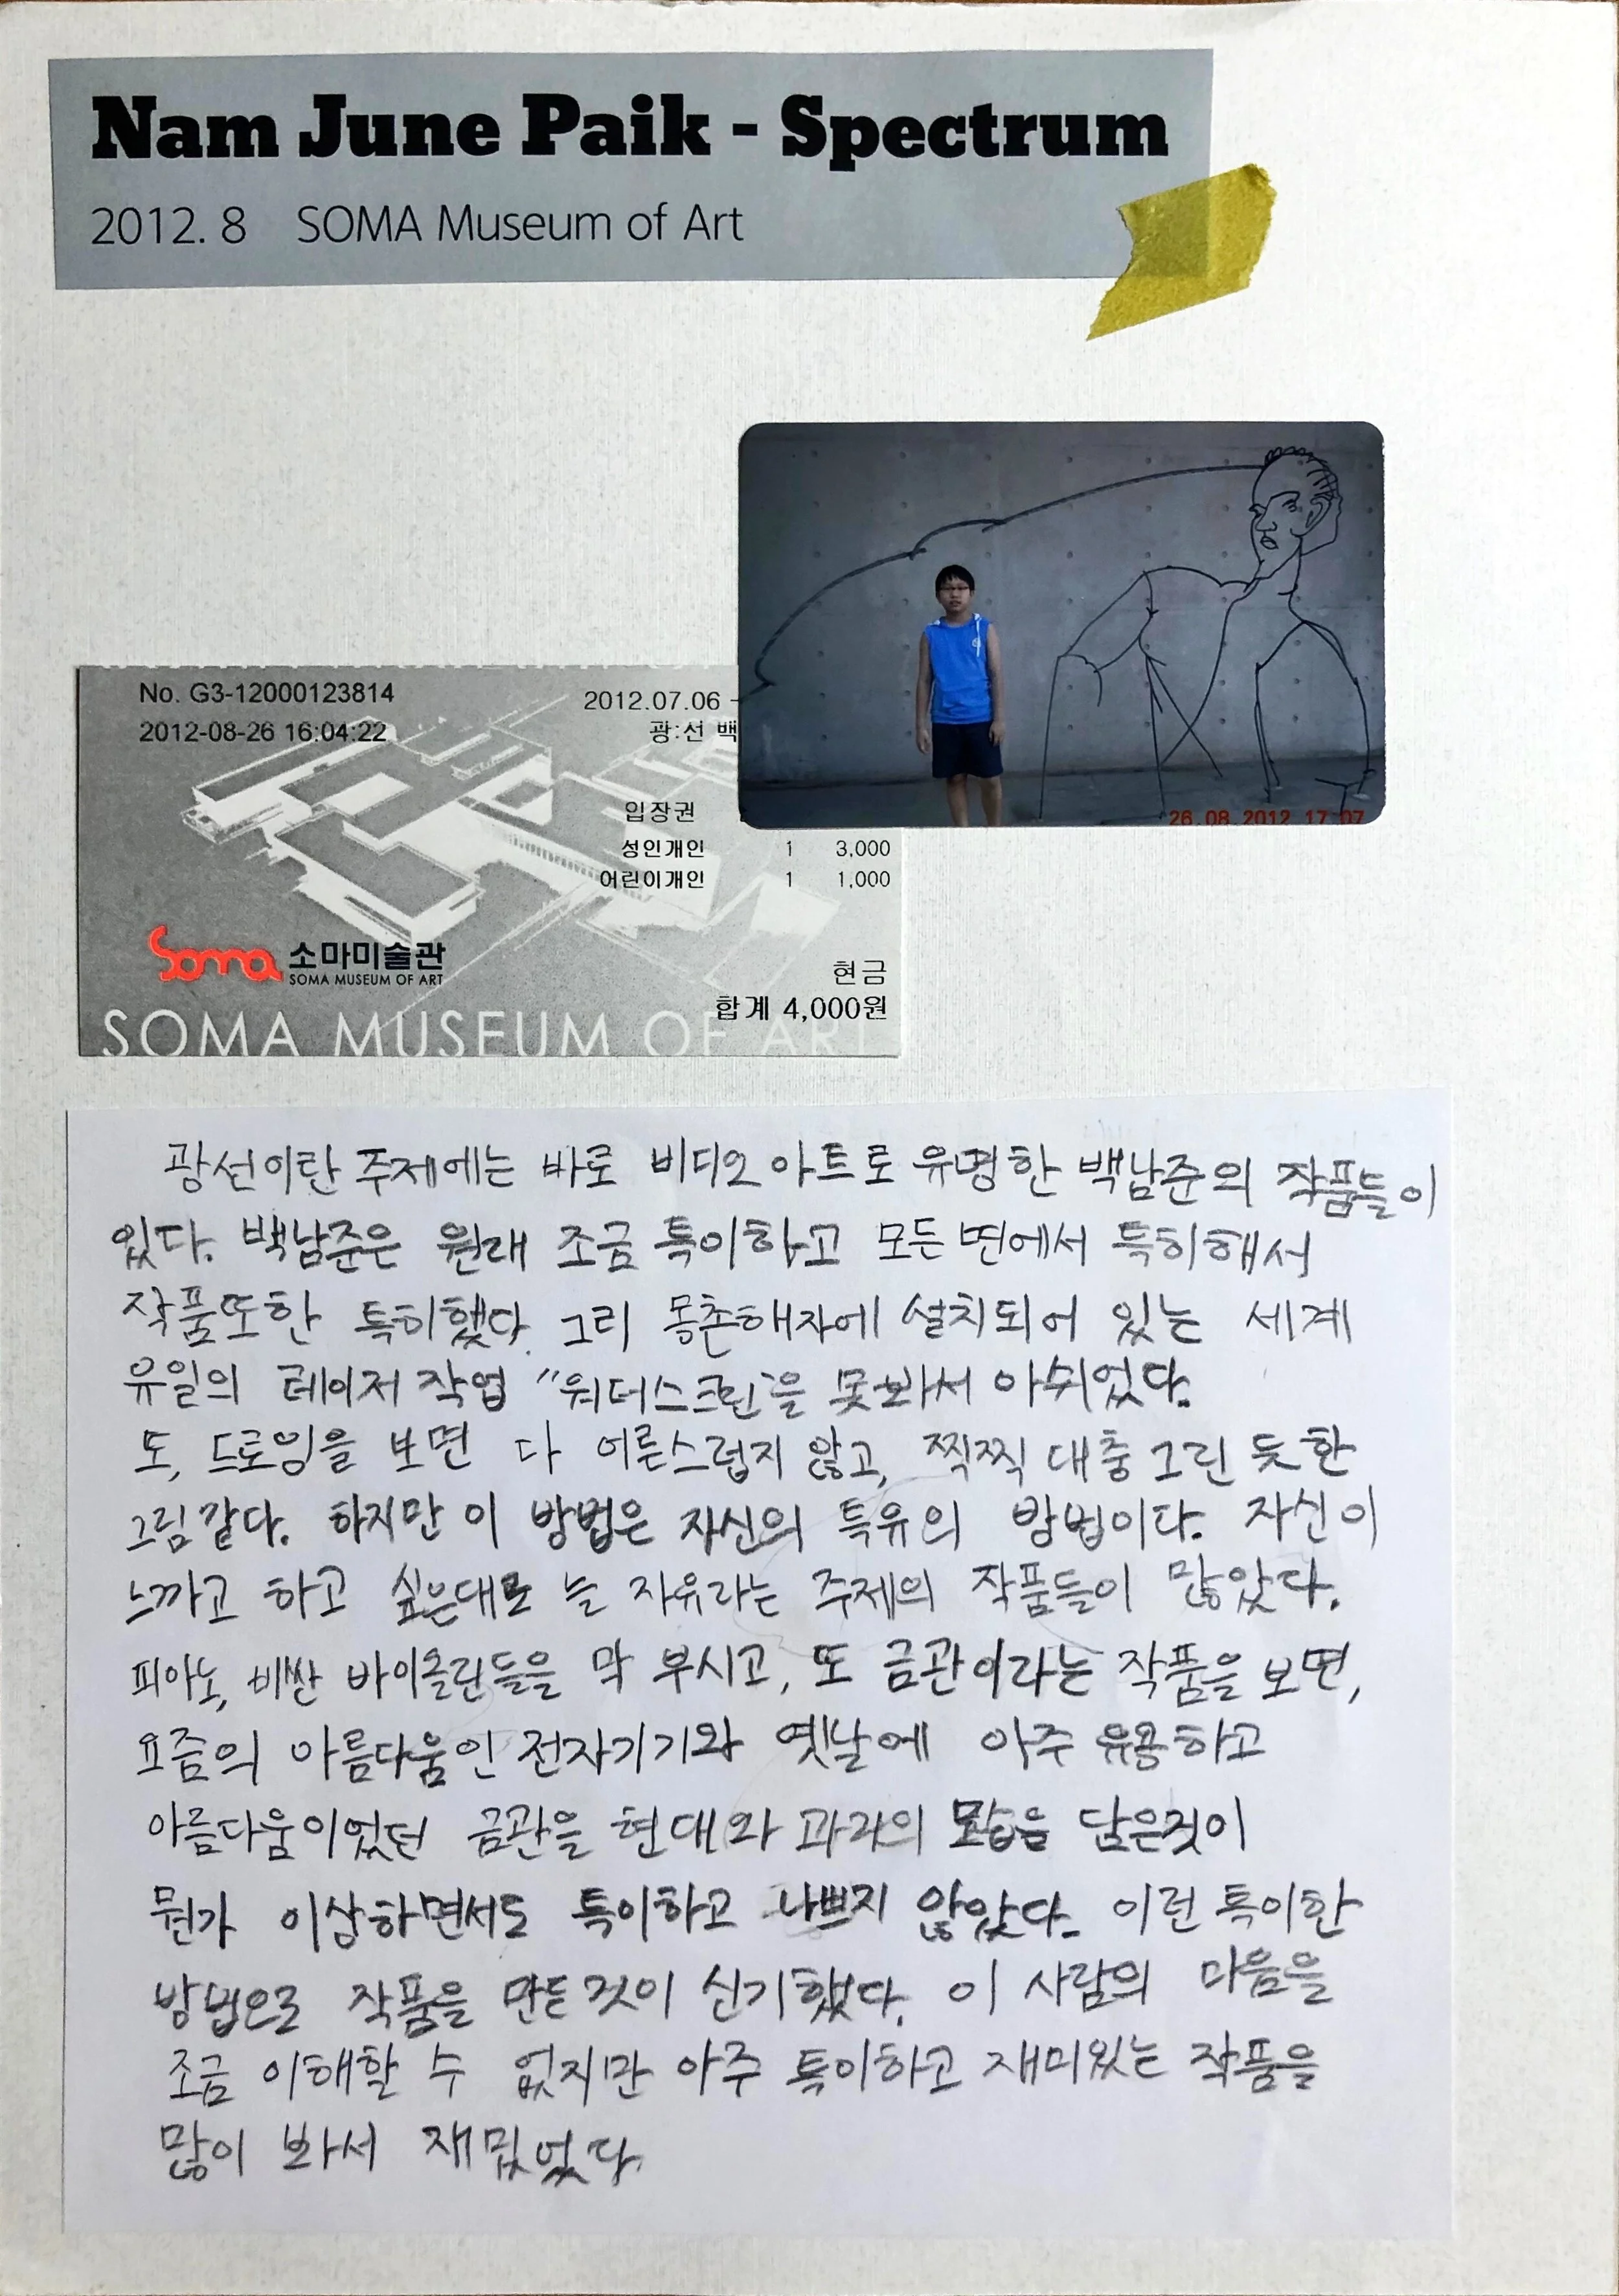 Nam June Paik - Spectrum
2012. 8 SOMA Museum of Art
No. G3-12000123814
2012-08-26 16:04:22
2012.07.06 -
광:선 백
입장권
성인개인 1 3,000
어린이개인 1 1,000
현금
합계 4,000원
Soma 소마미술관
SOMA MUSEUM OF ART
SOMA MUSEUM OF ART
26.08.2012 17:07
광선이란 주제에는 바로 비디오 아트로 유명한 백남준의 작품들이
있다. 백남준은 원래 조금 특이하고 모든 면에서 특히해서
작품또한 특히했다. 그리 몽촌해자에 설치되어 있는 세계
유일의 레이저 작업 "워터스크린"을 못봐서 아쉬었다.
또, 드로잉을 보면 다 어른스럽지 않고, 찍찍 대충 그린 듯한
그림같다. 하지만 이 방법은 자신의 특유의 방법이다. 자신이
느끼고 하고 싶은대로 늘 자유라는 주제의 작품들이 많았다.
피아노, 비싼 바이올린들을 막 부시고, 또 금관이라는 작품을 보면,
요즘의 아름다움인 전자기기와 옛날에 아주 유용하고
아름다움이었던 금관을 현대와 과거의 모습을 담은것이
뭔가 이상하면서도 특이하고 나쁘지 않았다. 이런 특이한
방법으로 작품을 만든것이 신기했다. 이 사람의 마음을
조금 이해할 수 없지만 아주 특이하고 재미있는 작품을
많이 봐서 재밌었다.